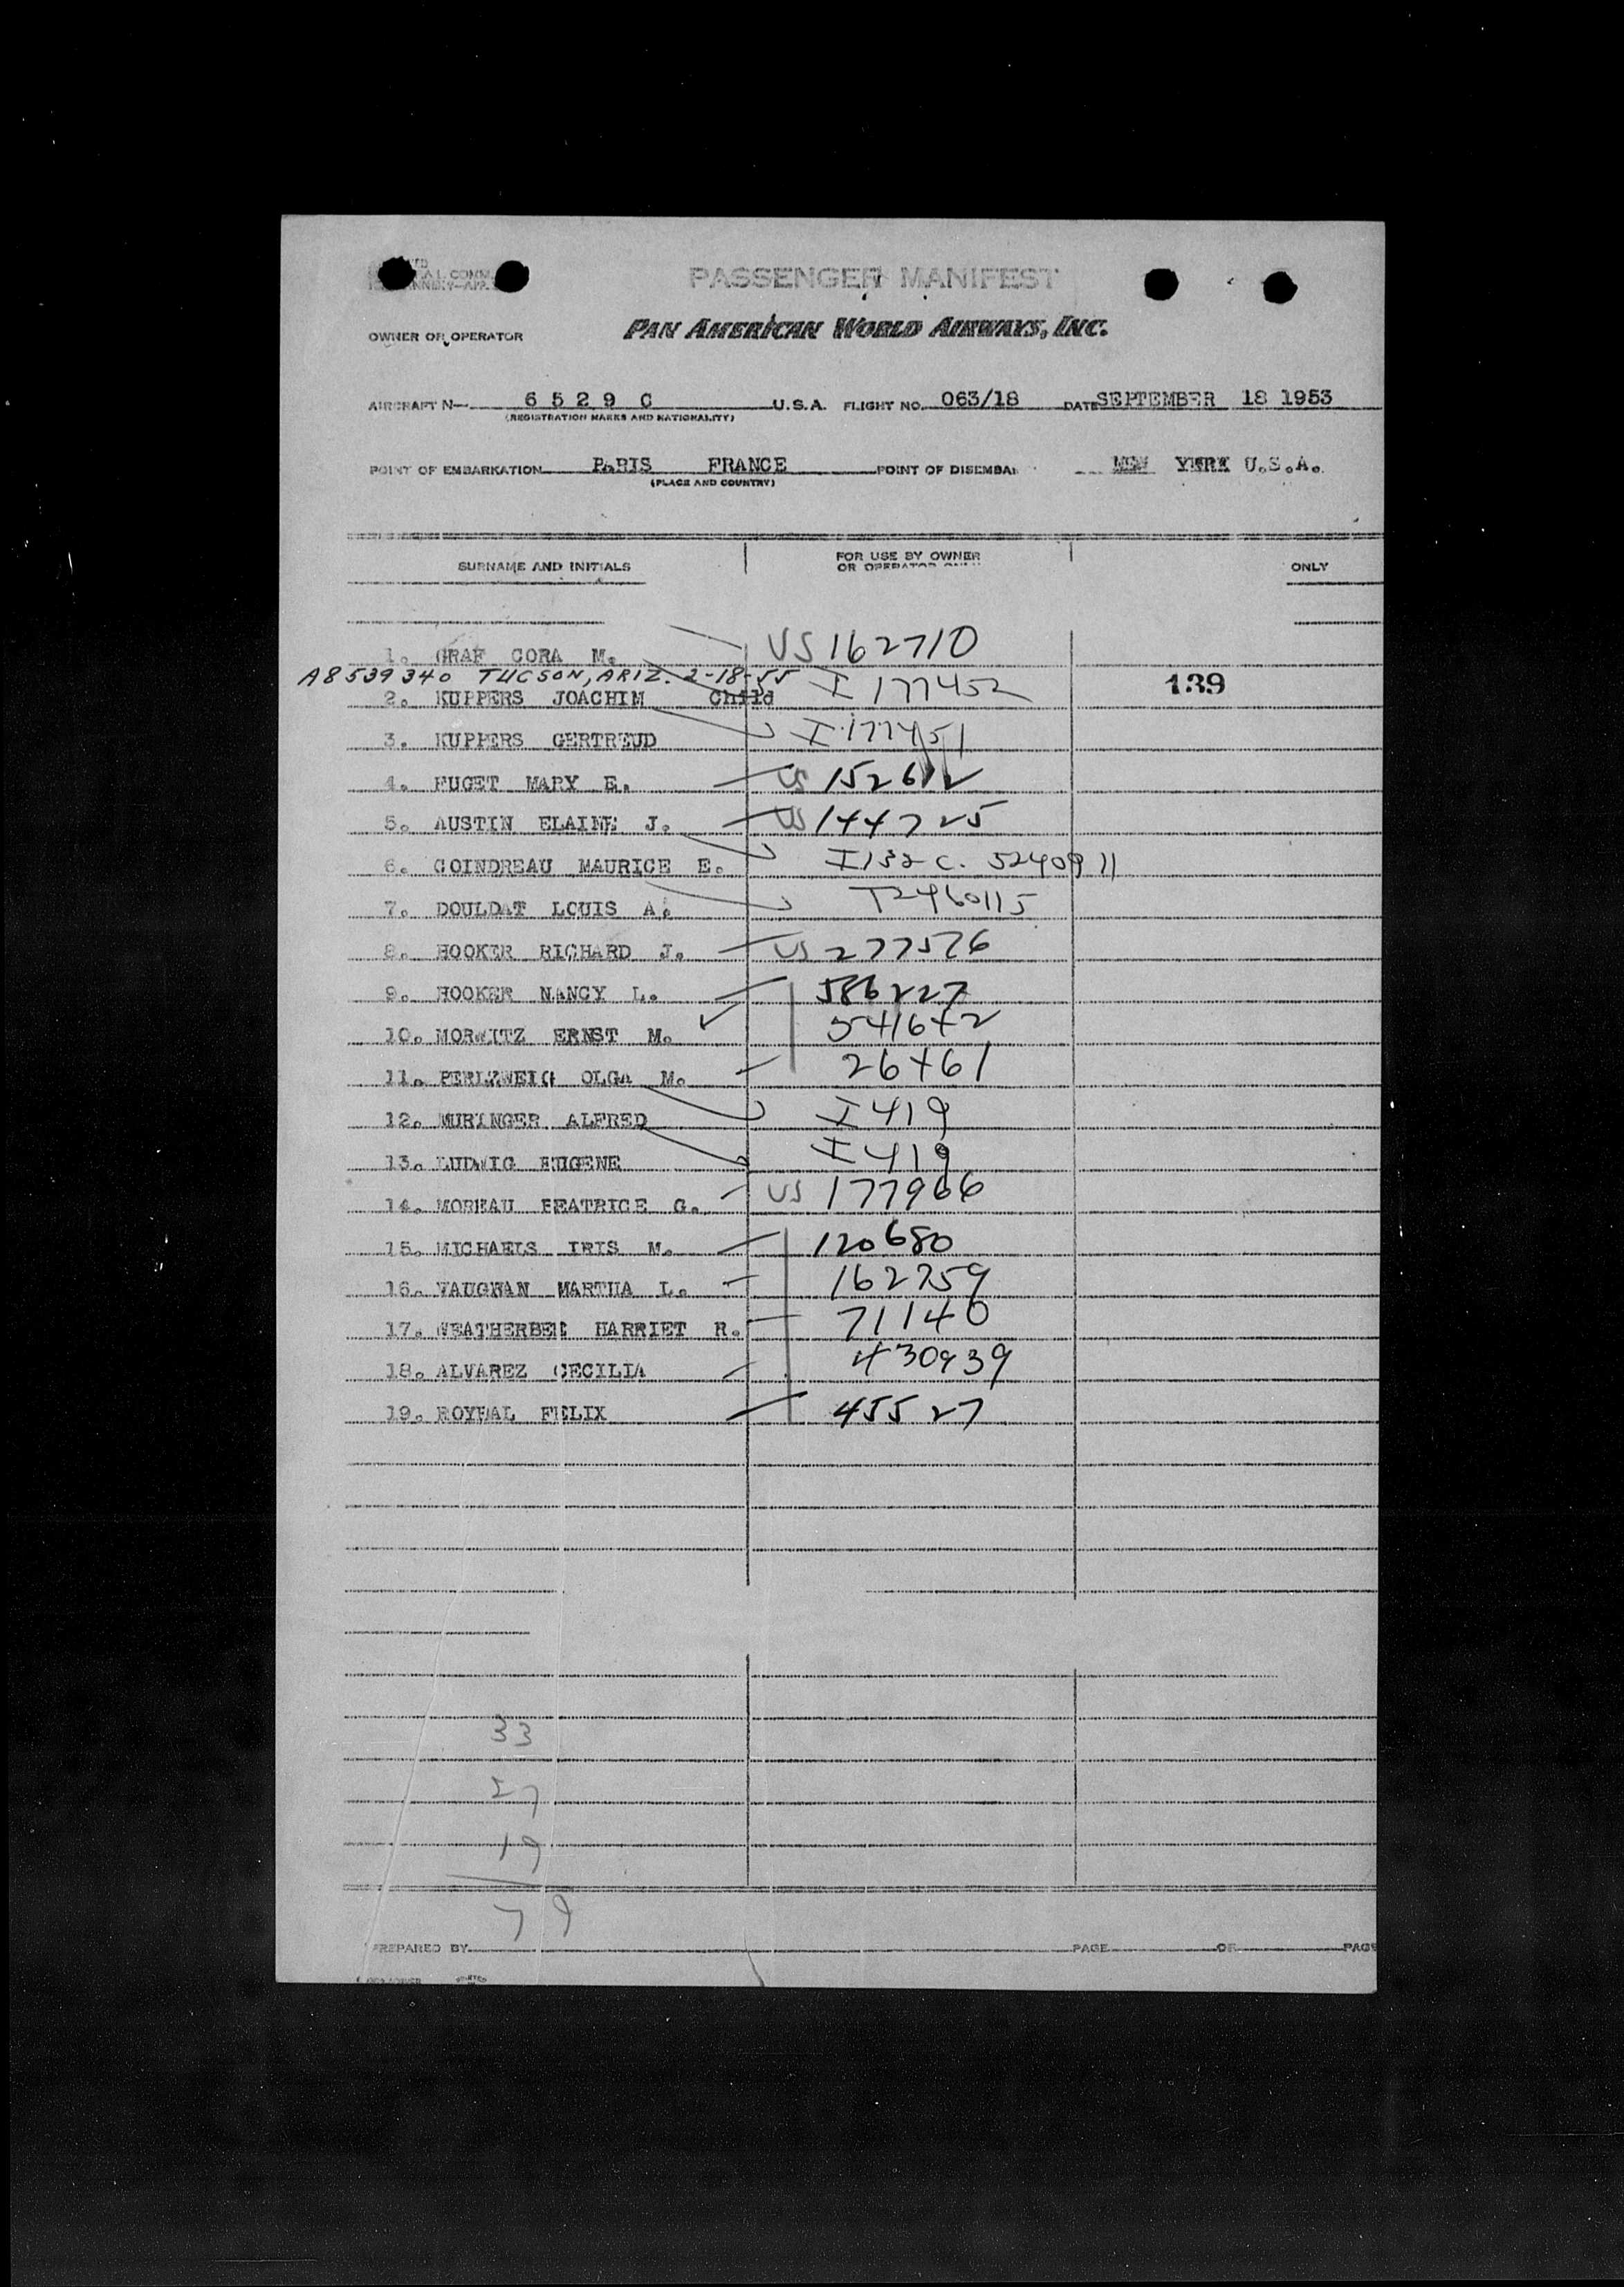 PASSENGER MANIFEST
OWNER OR OPERATOR PAN AMERICAN WORLD AIRWAYS, INC.
AIRCRAFT N— 6529 C U.S.A. FLIGHT NO. 063/18 DATE SEPTEMBER 18 1953
(REGISTRATION MARKS AND NATIONALITY)
POINT OF EMBARKATION PARIS FRANCE POINT OF DISEMBA NEW YMRK U.S.A.
(PLACE AND COUNTRY)
SURNAME AND INITIALS FOR USE BY OWNER OR OPERATOR ONLY ONLY
1. GRAF CORA M. US 162710
A8539340 TUCSON, ARIZ. 2-18-55
2. KUPPERS JOACHIM Child I 177452 139
3. KUPPERS GERTREUD I 177451
4. FUGET MARY E. US 152612
5. AUSTIN ELAINE J. US 144725
6. COINDREAU MAURICE E. I132 C. 5240911
7. DOULDAT LOUIS A. T2460115
8. HOOKER RICHARD J. US 277576
9. HOOKER NANCY L. 586227
10. MORWITZ ERNST M. 541642
11. PERLZWEIG OLGA M. 26461
12. MURINGER ALFRED I 419
13. LUDWIG EUGENE I 419
14. MOREAU BEATRICE G. US 177966
15. MICHAELS IRIS M. 120680
16. VAUGHAN MARTHA L. 162759
17. WEATHERBEE HARRIET R. 71140
18. ALVAREZ CECILIA 430939
19. ROYBAL FELIX 45527
33
27
19
79
PREPARED BY PAGE OF PAGE